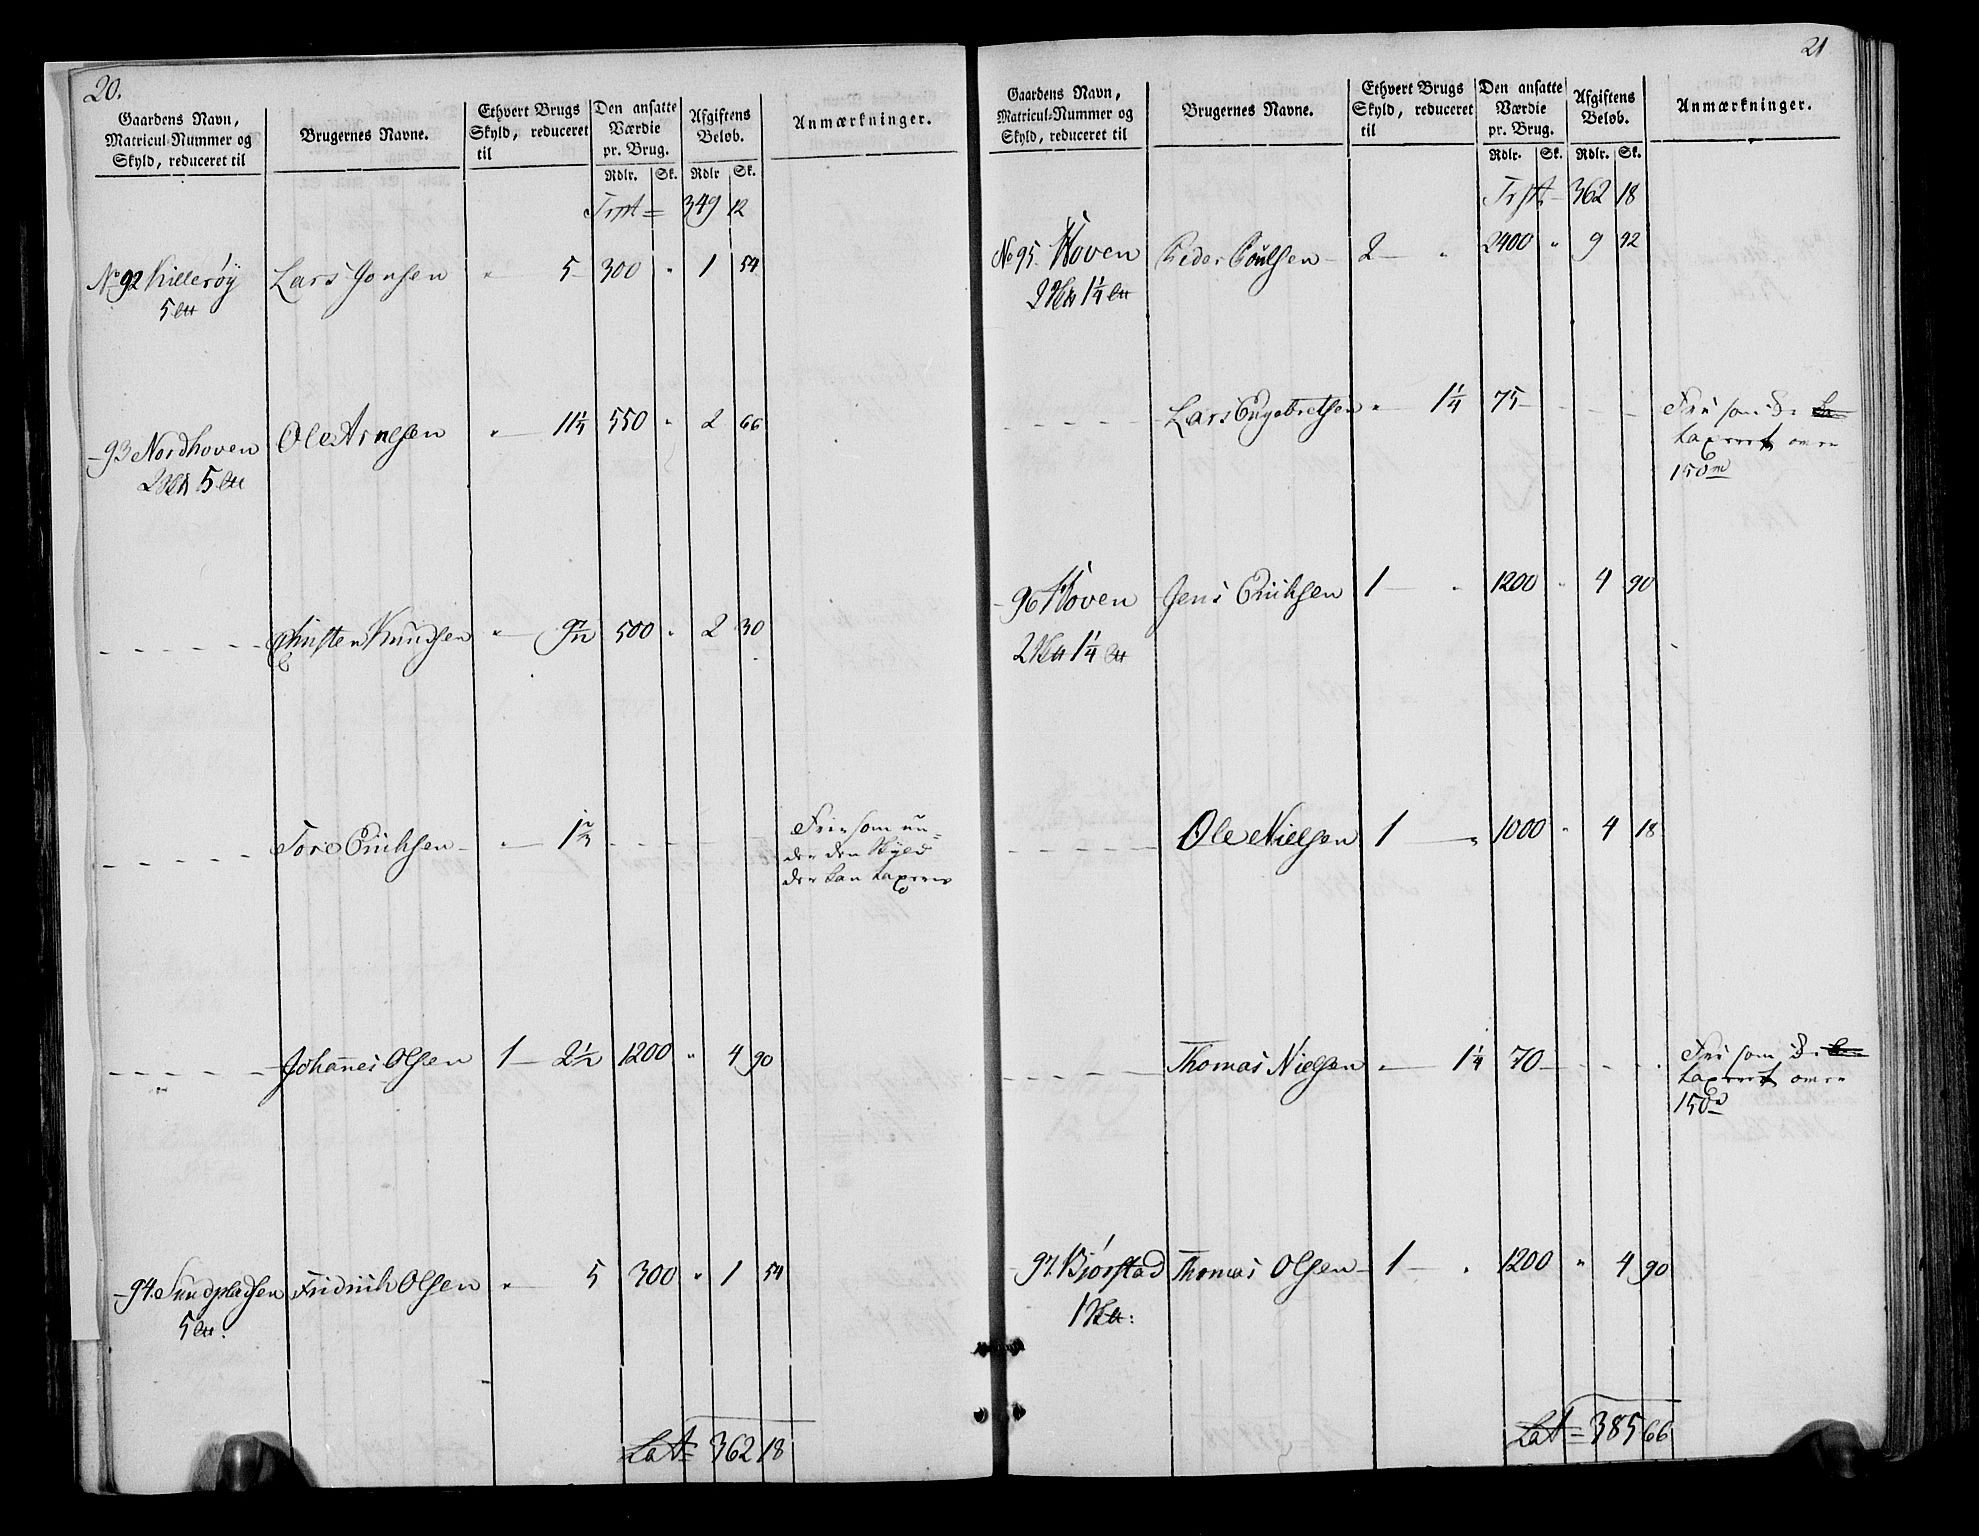 20.
Gaardens Navn, Matricul-Nummer og Skyld, reduceret til | Brugernes Navne. | Ethvert Brugs Skyld, reduceret til | Den ansatte Værdie pr. Brug. | Afgiftens Beløb. | Anmærkninger.
Rdlr. Sk. Rdlr Sk.
Trpt = 349 12
No 92 Killerøy Lars Jonsen " 5 - 300 " 1 54
5
93 Nordhoven Ole Arnesen " 11 1/4 550 " 2 66
2 5
Christen Knudsen " 9 1/2 500 " 2 30
Tore Erichsen " 1 Frie som un=
der den Skyld
der kan taxeres
Johannes Olsen 1 2 1/2 1200 " 4 90
94. Sundpladsen Fridrich Olsen " 5 300 " 1 54
5
Lat = 362 18
21
Gaardens Navn, Matricul-Nummer og Skyld, reduceret til | Brugernes Navne. | Ethvert Brugs Skyld, reduceret til | Den ansatte Værdie pr. Brug. | Afgiftens Beløb. | Anmærkninger.
Rdlr. Sk. Rdlr. Sk.
Trpt 362 18
No 95. Hoven Peder Poulsen 2 " 2400 " 9 92
2 1 1/4
Lars Engebretsen " 1 1/4 75 Fri som
taxeret
150
96 Hoven Jens Erichsen 1 " 1200 " 4 90
2 1 1/4
Ole Nielsen 1 " 1000 " 4 18
Thomas Nielsen " 1 1/4 70 Fri som
taxeret
150
97. Bjørstad Thomas Olsen 1 " 1200 " 4 90
1
Lat = 385 66